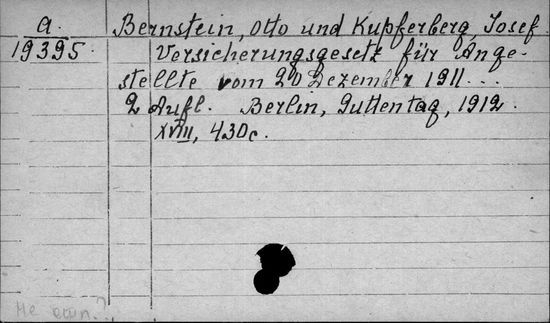 a.
19395.
Bernstein, Otto und Kupferberg, Josef.
Versicherungsgesetz für Ange-
stellte vom 20 Dezember 1911...
2 Aufl. Berlin, Guttentag, 1912.
XVIII, 430c.